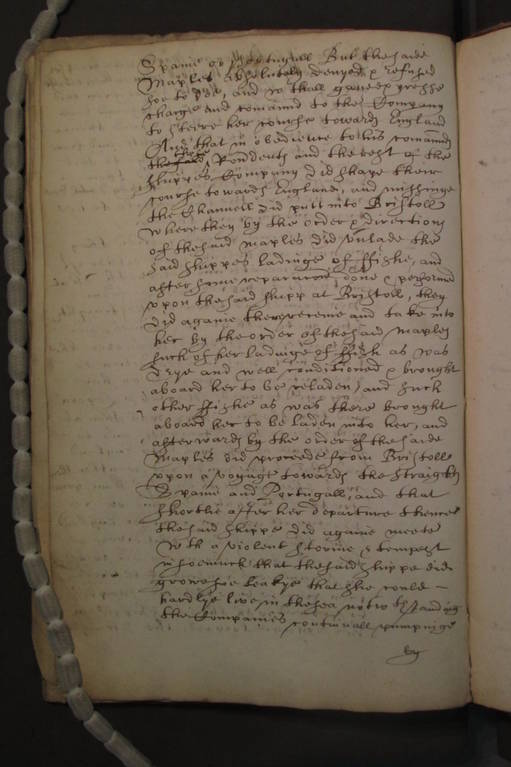 Spaine or Portugall But the saide
Maples absolutely denyed & refused
soe to doe, and
charge and comaund to the Company
to steere her course towards England
And that in obedience to his comaund
the Rondents and the rest of the
shippes Company did shape their
course towards England, and missinge
the Channell did putt into Bristoll
where they by the order & direction
of the said Maples did unlade the
said shippes ladinge of ffishe, and
after some reparacon done & performed
upon the said shipp at Bristoll, they
did againe there receive and take into
her by the order of the said Maples
such of her ladinge of ffish as was
drye and well conditioned & brought
aboard her to be reladen, and such
other ffishe as was there brought
aboard her to be laden into her, and
afterwards by the order of the saide
Maples did proceede from Bristoll
upon a voyage towards the Straights
Spaine and Portugall, and that
shortlie after her departure thence
the said shippe did againe meete
wth a violent storme & tempest
insoemuch that the said shippe did
growe soe leakye that she could
hardlye live in the sea notwthstanding
the Companies continuall pumpinge
by